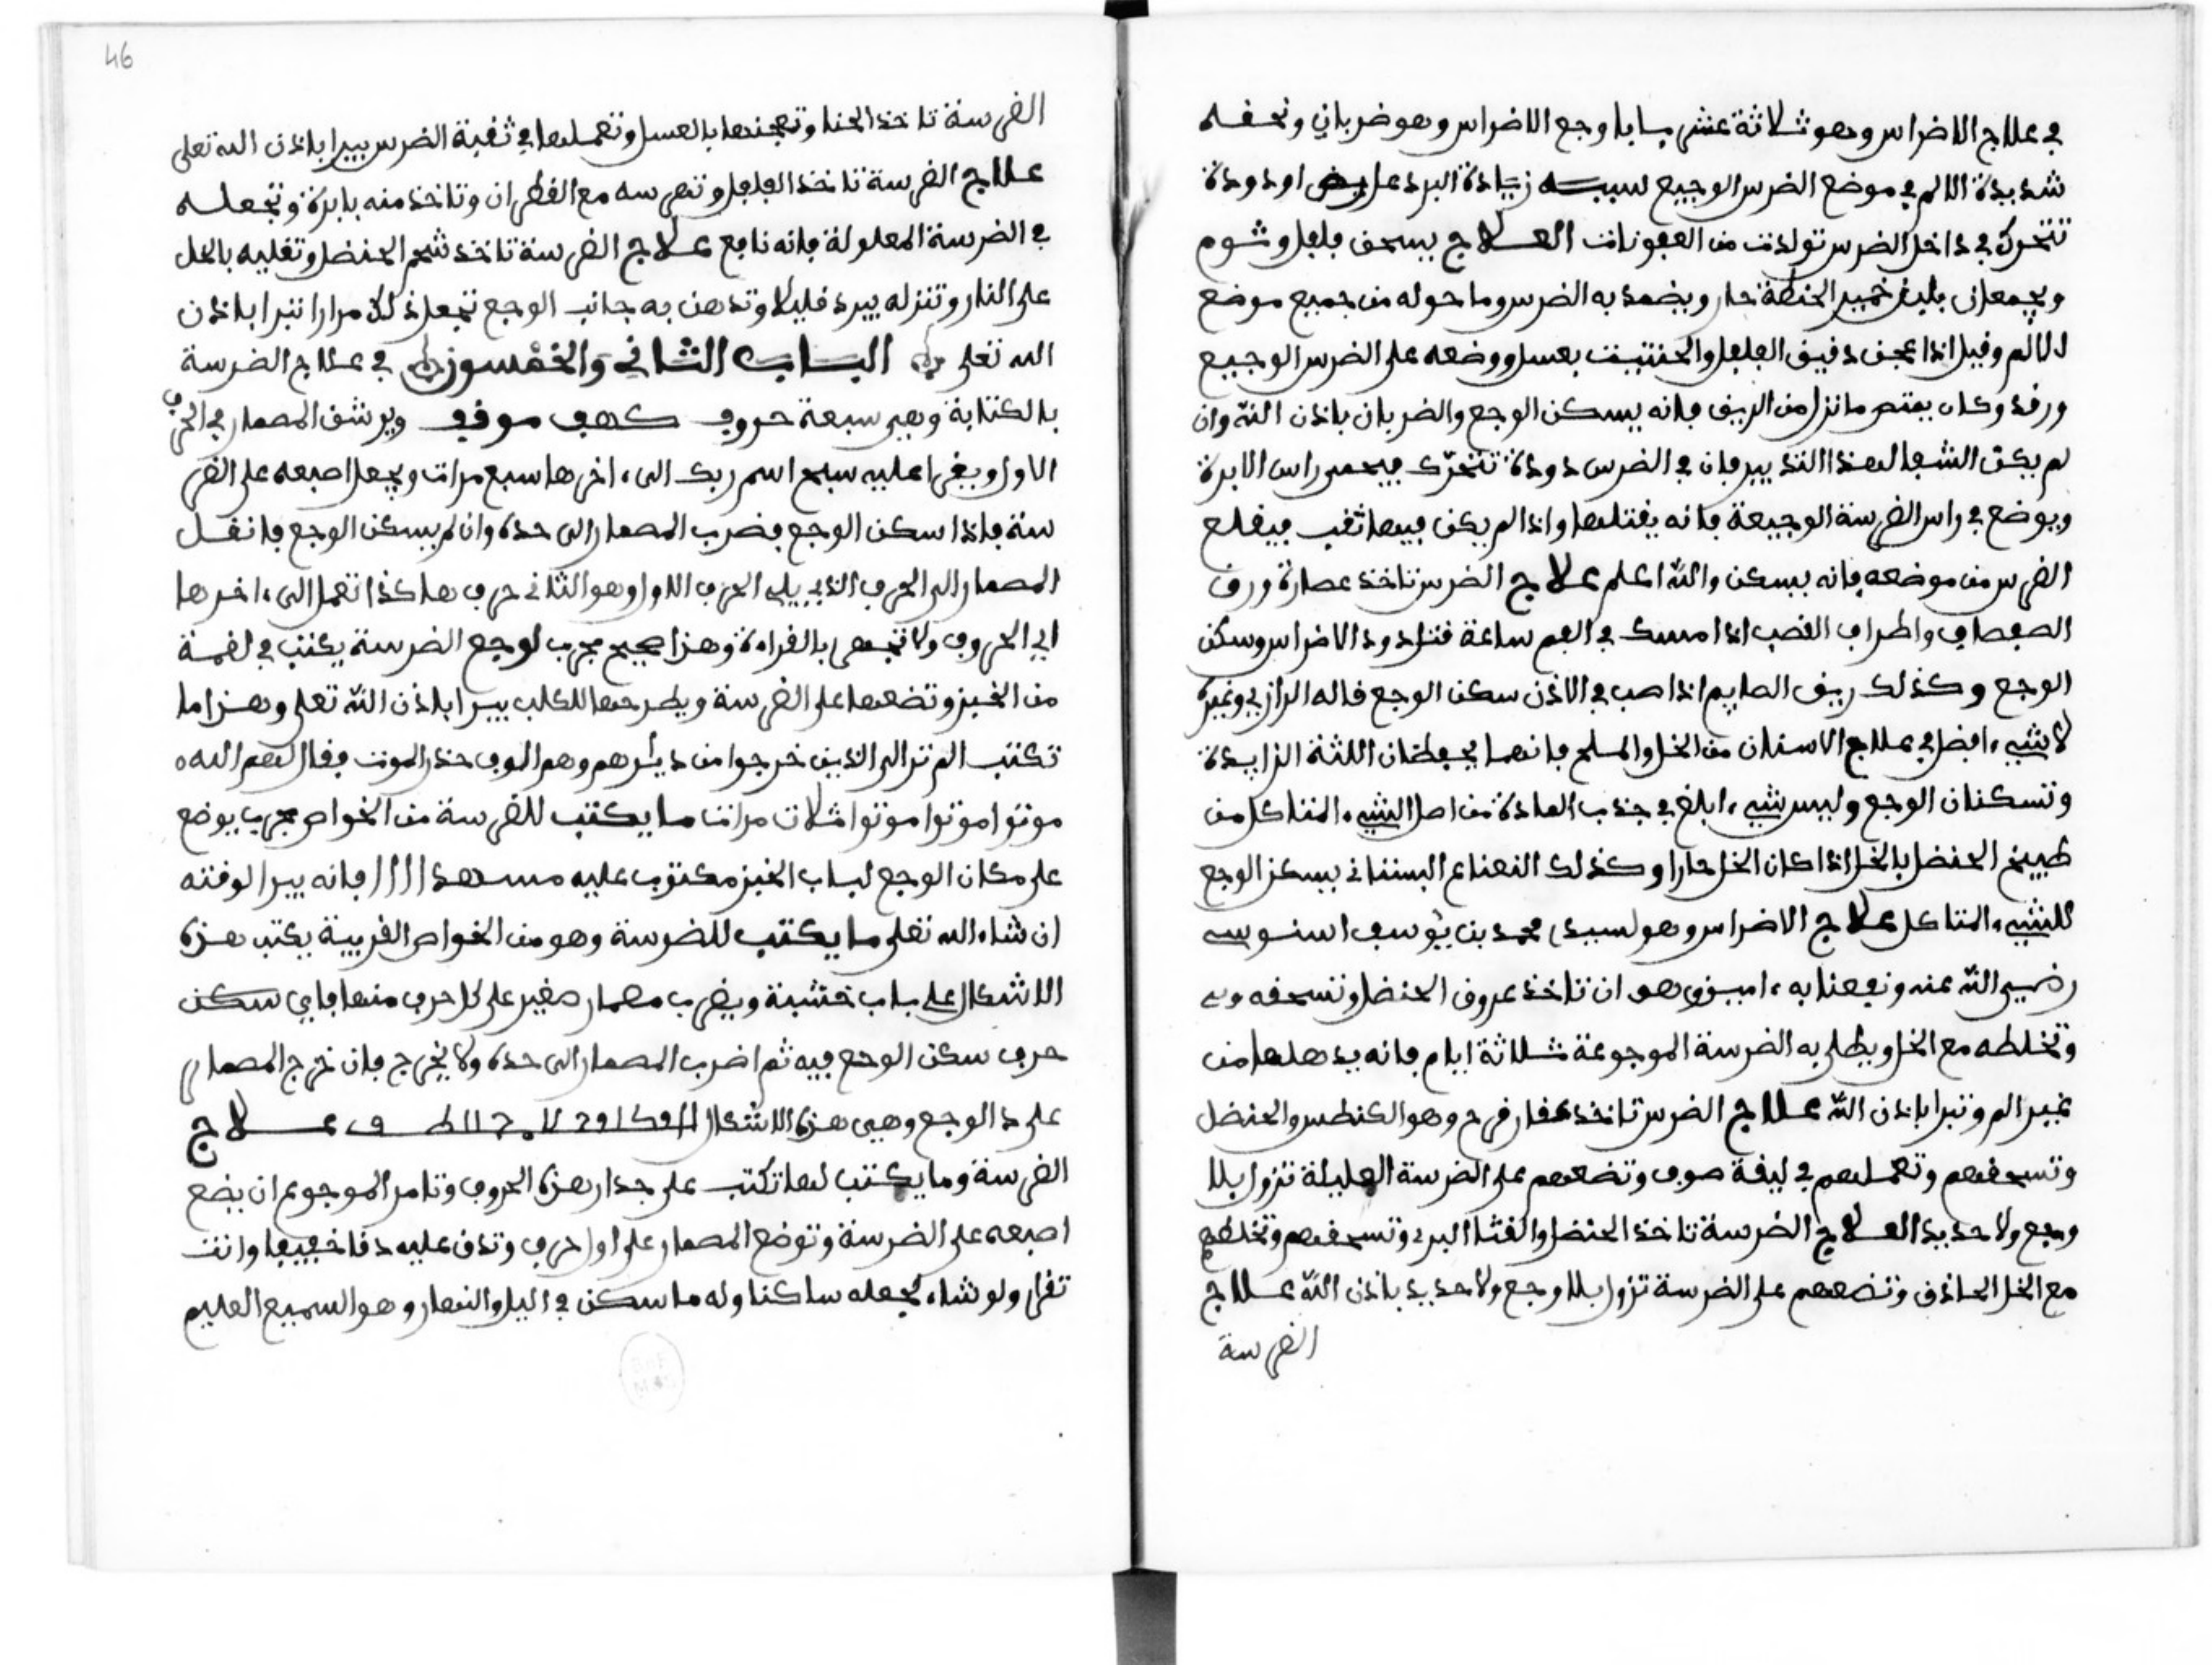 في علاج الاضراس وهو ثلاثة عشر بابا وجع الاضراس وهو ضربان ونخسه
شديدة الالم في موضع الضرس الوجيع سببه زيادة البرد على او دودة
تتحرك في داخل الضرس تولدت من العفونات العلاج يسحق فلفل وثوم
ويجعلان بليغ خمير الحنطة حار ويضمد به الضرس وما حوله من جميع موضع
الالم وقيل اذا عجن دقيق الفلفل والحنتيت بعسل ووضعه على الضرس الوجيع
ورقد وكان يمتص ما نزل من الريق فانه يسكن الوجع والضربان باذن الله وان
لم يكن الشفا لهذا التدبير فان في الضرس دودة تتحرك فيحمى راس الابرة
ويوضع في راس الضرسة الوجيعة فانه يقتلها واذا لم يكن فيها ثقب فيقلع
الضرس من موضعه فانه يسكن والله اعلم علاج الضرس تاخذ عصارة ورق
الصفصاف واطراف القصب اذا امسك في الفم ساعة قتل دود الاضراس وسكن
الوجع وكذلك ريق الصايم اذا صب في الاذن سكن الوجع قاله الرازي وغيره
لا شيء افضل في علاج الاسنان من الخل والملح فانهما يحفظان اللثة الزايدة
وتسكنان الوجع وليس شيء ابلغ في جذب المادة من اصل الشيء المتاكل من
طبيخ الحنضل بالخل اذا كان الخل حارا وكذلك النعناع البستاني يسكن الوجع
للشيء المتاكل علاج الاضراس وهو لسيدي محمد بن يوسف السنوسي
رضي الله عنه ونفعنا به ءامين وهو ان تاخذ عروق الحنضل وتسحقه
وتخلطه مع الخل ويطلى به الضرسة الموجوعة ثلاثة ايام فانه يدهلها من
غير الم وتبرا باذن الله علاج الضرس تاخذ عقار قرح وهو الكنطس والحنضل
وتسحقهم وتعملهم في ليقة صوف وتضعهم على الضرسة العليلة تزول بلا
وجع ولا حديد العلاج الضرسة تاخذ الحنضل والقثا البري وتسحقهم وتخلطهم
مع الخل الحاذق وتضعهم على الضرسة تزول بلا وجع ولا حديد باذن الله علاج
الضرسة
46
الضرسة تاخذ الحنا وتعجنها بالعسل وتعملها في ثقبة الضرس يبرا باذن الله تعلى
علاج الضرسة تاخذ الفلفل وتهرسه مع القطران وتاخذ منه بابرة وتجعله
في الضرسة المعلولة فانه نافع علاج الضرسة تاخذ شحم الحنضل وتغليه بالخل
على النار وتنزله يبرد قليلا وتدهن به جانب الوجع تفعل ذلك مرارا تبرا باذن
الله تعلى الباب الثاني والخمسون في علاج الضرسة
بالكتابة وهي سبعة حروف كهف موفي ويرشق المصمار في الحرف
الاول ويقرا عليه سبح اسم ربك الى ءاخرها سبع مرات ويجعل اصبعه على الضر
سة فاذا سكن الوجع فضرب المصمار الى حده وان لم يسكن الوجع فانقل
المصمار الى الحرف الذي يلي الحرف الاول وهو الثاني حرف هاكذا تعمل الى ءاخرها
اي الحروف ولا تجهر بالقراءة وهذا صحيح مجرب لوجع الضرسة يكتب في لقمة
من الخبز وتضعها على الضرسة ويطرحها للكلب يبرا باذن الله تعلى وهذا ما
تكتب الم تر الى الذين خرجوا من ديرهم وهم الوف حذر الموت فقال لهم الله
موتوا موتوا موتوا ثلاث مرات ما يكتب للضرسة من الخواص مجرب يوضع
على مكان الوجع لباب الخبز مكتوب عليه فانه يبرا لوقته
ان شاء الله تعلى ما يكتب للضرسة وهو من الخواص الغريبة يكتب هذه
الاشكال على باب خشبة ويضرب مصمار صغير على كل حرف منها فاي سكن
حرف سكن الوجع فيه ثم اضرب المصمار الى حده ولا يخرج فان خرج المصمار
على د الوجع وهي هذه الاشكال علاج
الضرسة وما يكتب لها تكتب على جدار هذه الحروف وتامر الموجوع ان يضع
اصبعه على الضرسة وتوضع المصمار على اول حرف وتدق عليه دقا خفيفا وانت
تقرا ولو شاء لجعله ساكنا وله ما سكن في اليل والنهار وهو السميع العليم